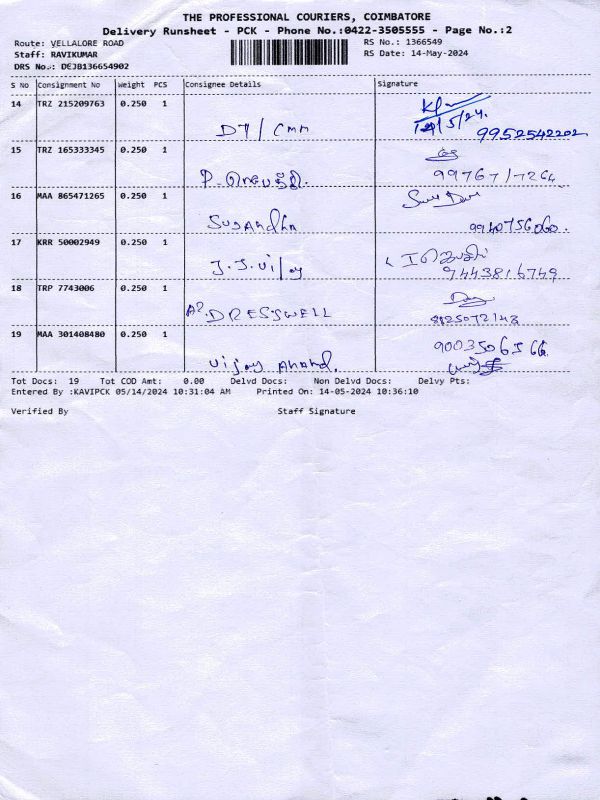 THE PROFESSIONAL COURIERS, COIMBATORE
Delivery Runsheet - PCK - Phone No.:0422-3505555 - Page No.:2
Route: VELLALORE ROAD RS No.: 1366549
Staff: RAVIKUMAR RS Date: 14-May-2024
DRS No.: DEJB136654902
S No Consignment No Weight PCS Consignee Details Signature
14 TRZ 215209763 0.250 1
DT/CMM 9952542202
15 TRZ 165333345 0.250 1
99767/7264
16 MAA 865471265 0.250 1
Sugandha 9940756060.
17 KRR 50002949 0.250 1
J.J.Vijay 9443816749
18 TRP 7743006 0.250 1
DRESSWELL 8825072148
19 MAA 301408480 0.250 1
Vijay Anand.
Tot Docs: 19 Tot COD Amt: 0.00 Delvd Docs: Non Delvd Docs: Delvy Pts:
Entered By :KAVIPCK 05/14/2024 10:31:04 AM Printed On: 14-05-2024 10:36:10
Verified By Staff Signature